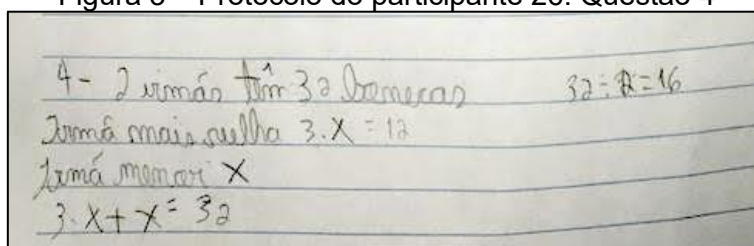 Figura – Protocolo do participante Questão 4
4- 2 irmãs têm 32 bonecas 32÷2=16
Irmã mais velha 3.X = 12
Irmã menor X
3.X+X = 32